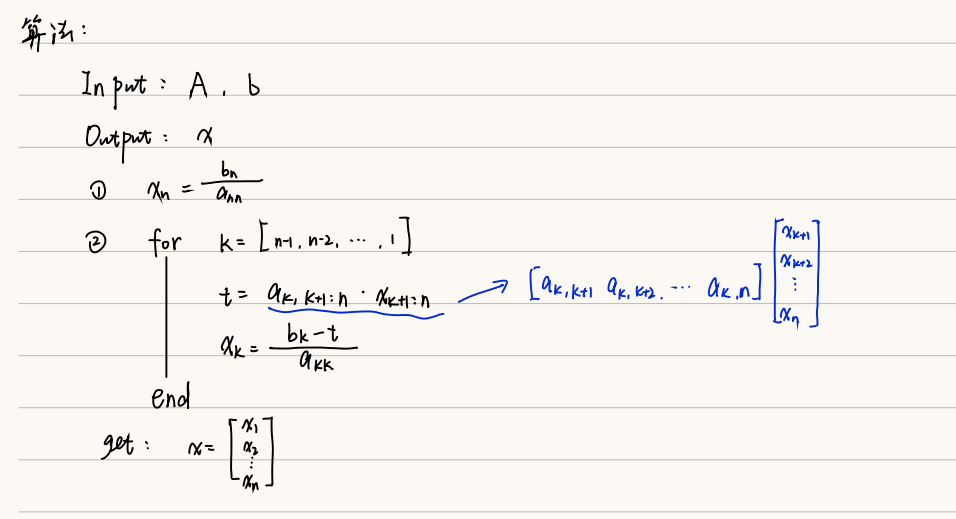 算法:
Input: A, b
Output: x
① xₙ = bₙ / aₙₙ
② for k = [n-1, n-2, ⋯, 1]
t = a_{k,k+1:n} · x_{k+1:n} → [a_{k,k+1} a_{k,k+2}, ⋯ a_{k,n}] [x_{k+1} x_{k+2} ⋮ xₙ]
x_k = (b_k - t) / a_{kk}
end
get: x = [x₁ x₂ ⋮ xₙ]